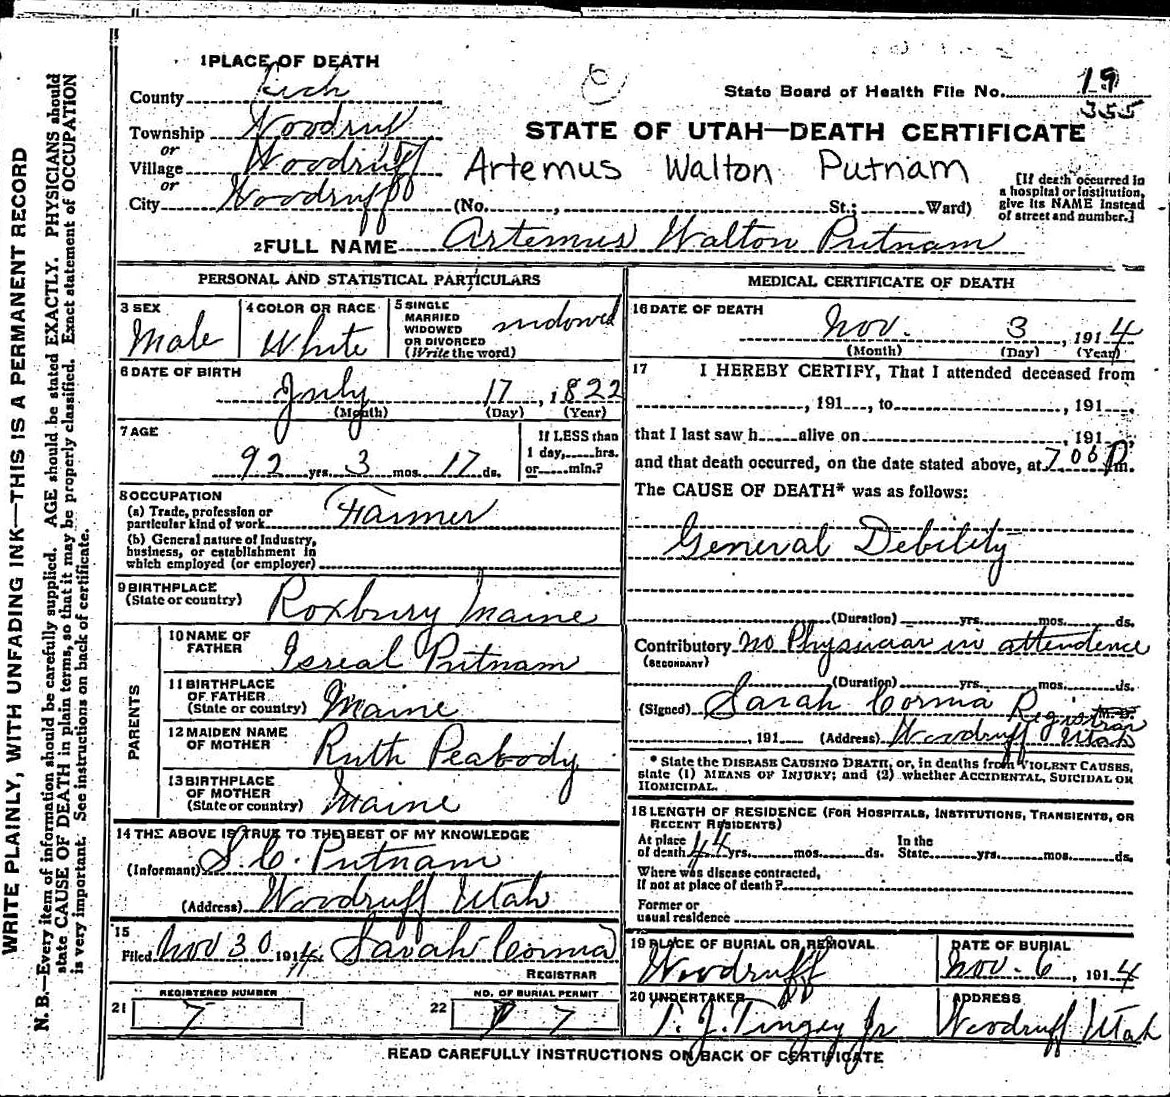 WRITE PLAINLY, WITH UNFADING INK—THIS IS A PERMANENT RECORD
N. B.—Every item of information should be carefully supplied. AGE should be stated EXACTLY. PHYSICIANS should
state CAUSE OF DEATH in plain terms, so that it may be properly classified. Exact statement of OCCUPATION
is very important. See instructions on back of certificate.
1 PLACE OF DEATH
County Rich
State Board of Health File No. 19
355
Township Woodruff
or
STATE OF UTAH—DEATH CERTIFICATE
Village Woodruff
or
Artemus Walton Putnam
City Woodruff
(No. , St.; Ward)
[If death occurred in
a hospital or institution,
give its NAME instead
of street and number.]
2 FULL NAME Artemus Walton Putnam
PERSONAL AND STATISTICAL PARTICULARS
3 SEX
Male
4 COLOR OR RACE
White
5 SINGLE
MARRIED
WIDOWED
OR DIVORCED
(Write the word)
widowed
6 DATE OF BIRTH
July 17, 1822
(Month) (Day) (Year)
7 AGE
92 yrs. 3 mos. 17 ds.
If LESS than
1 day, hrs.
or min.?
8 OCCUPATION
(a) Trade, profession or
particular kind of work Farmer
(b) General nature of Industry,
business, or establishment in
which employed (or employer)
9 BIRTHPLACE
(State or country) Roxbury Maine
PARENTS
10 NAME OF
FATHER Isreal Putnam
11 BIRTHPLACE
OF FATHER
(State or country) Maine
12 MAIDEN NAME
OF MOTHER Ruth Peabody
13 BIRTHPLACE
OF MOTHER
(State or country) Maine
14 THE ABOVE IS TRUE TO THE BEST OF MY KNOWLEDGE
(Informant) S. C. Putnam
(Address) Woodruff Utah
15
Filed Nov 30 1914 Sarah Corma
REGISTRAR
21 REGISTERED NUMBER
7
22 NO. OF BURIAL PERMIT
7
MEDICAL CERTIFICATE OF DEATH
16 DATE OF DEATH
Nov. 3, 1914
(Month) (Day) (Year)
17 I HEREBY CERTIFY, That I attended deceased from
, 191 , to , 191 ,
that I last saw h alive on , 191 ,
and that death occurred, on the date stated above, at 706 P m.
The CAUSE OF DEATH* was as follows:
General Debility
(Duration) yrs. mos. ds.
Contributory no Physician in attendence
(SECONDARY)
(Duration) yrs. mos. ds.
(Signed) Sarah Corma Registrar M. D.
, 191 (Address) Woodruff Utah
* State the DISEASE CAUSING DEATH, or, in deaths from VIOLENT CAUSES,
state (1) MEANS OF INJURY; and (2) whether ACCIDENTAL, SUICIDAL OR
HOMICIDAL.
18 LENGTH OF RESIDENCE (FOR HOSPITALS, INSTITUTIONS, TRANSIENTS, OR
RECENT RESIDENTS)
At place
of death 44 yrs. mos. ds.
In the
State yrs. mos. ds.
Where was disease contracted,
If not at place of death?
Former or
usual residence
19 PLACE OF BURIAL OR REMOVAL
Woodruff
DATE OF BURIAL
Nov. 6, 1914
20 UNDERTAKER
T. J. Tingey Jr
ADDRESS
Woodruff Utah
READ CAREFULLY INSTRUCTIONS ON BACK OF CERTIFICATE